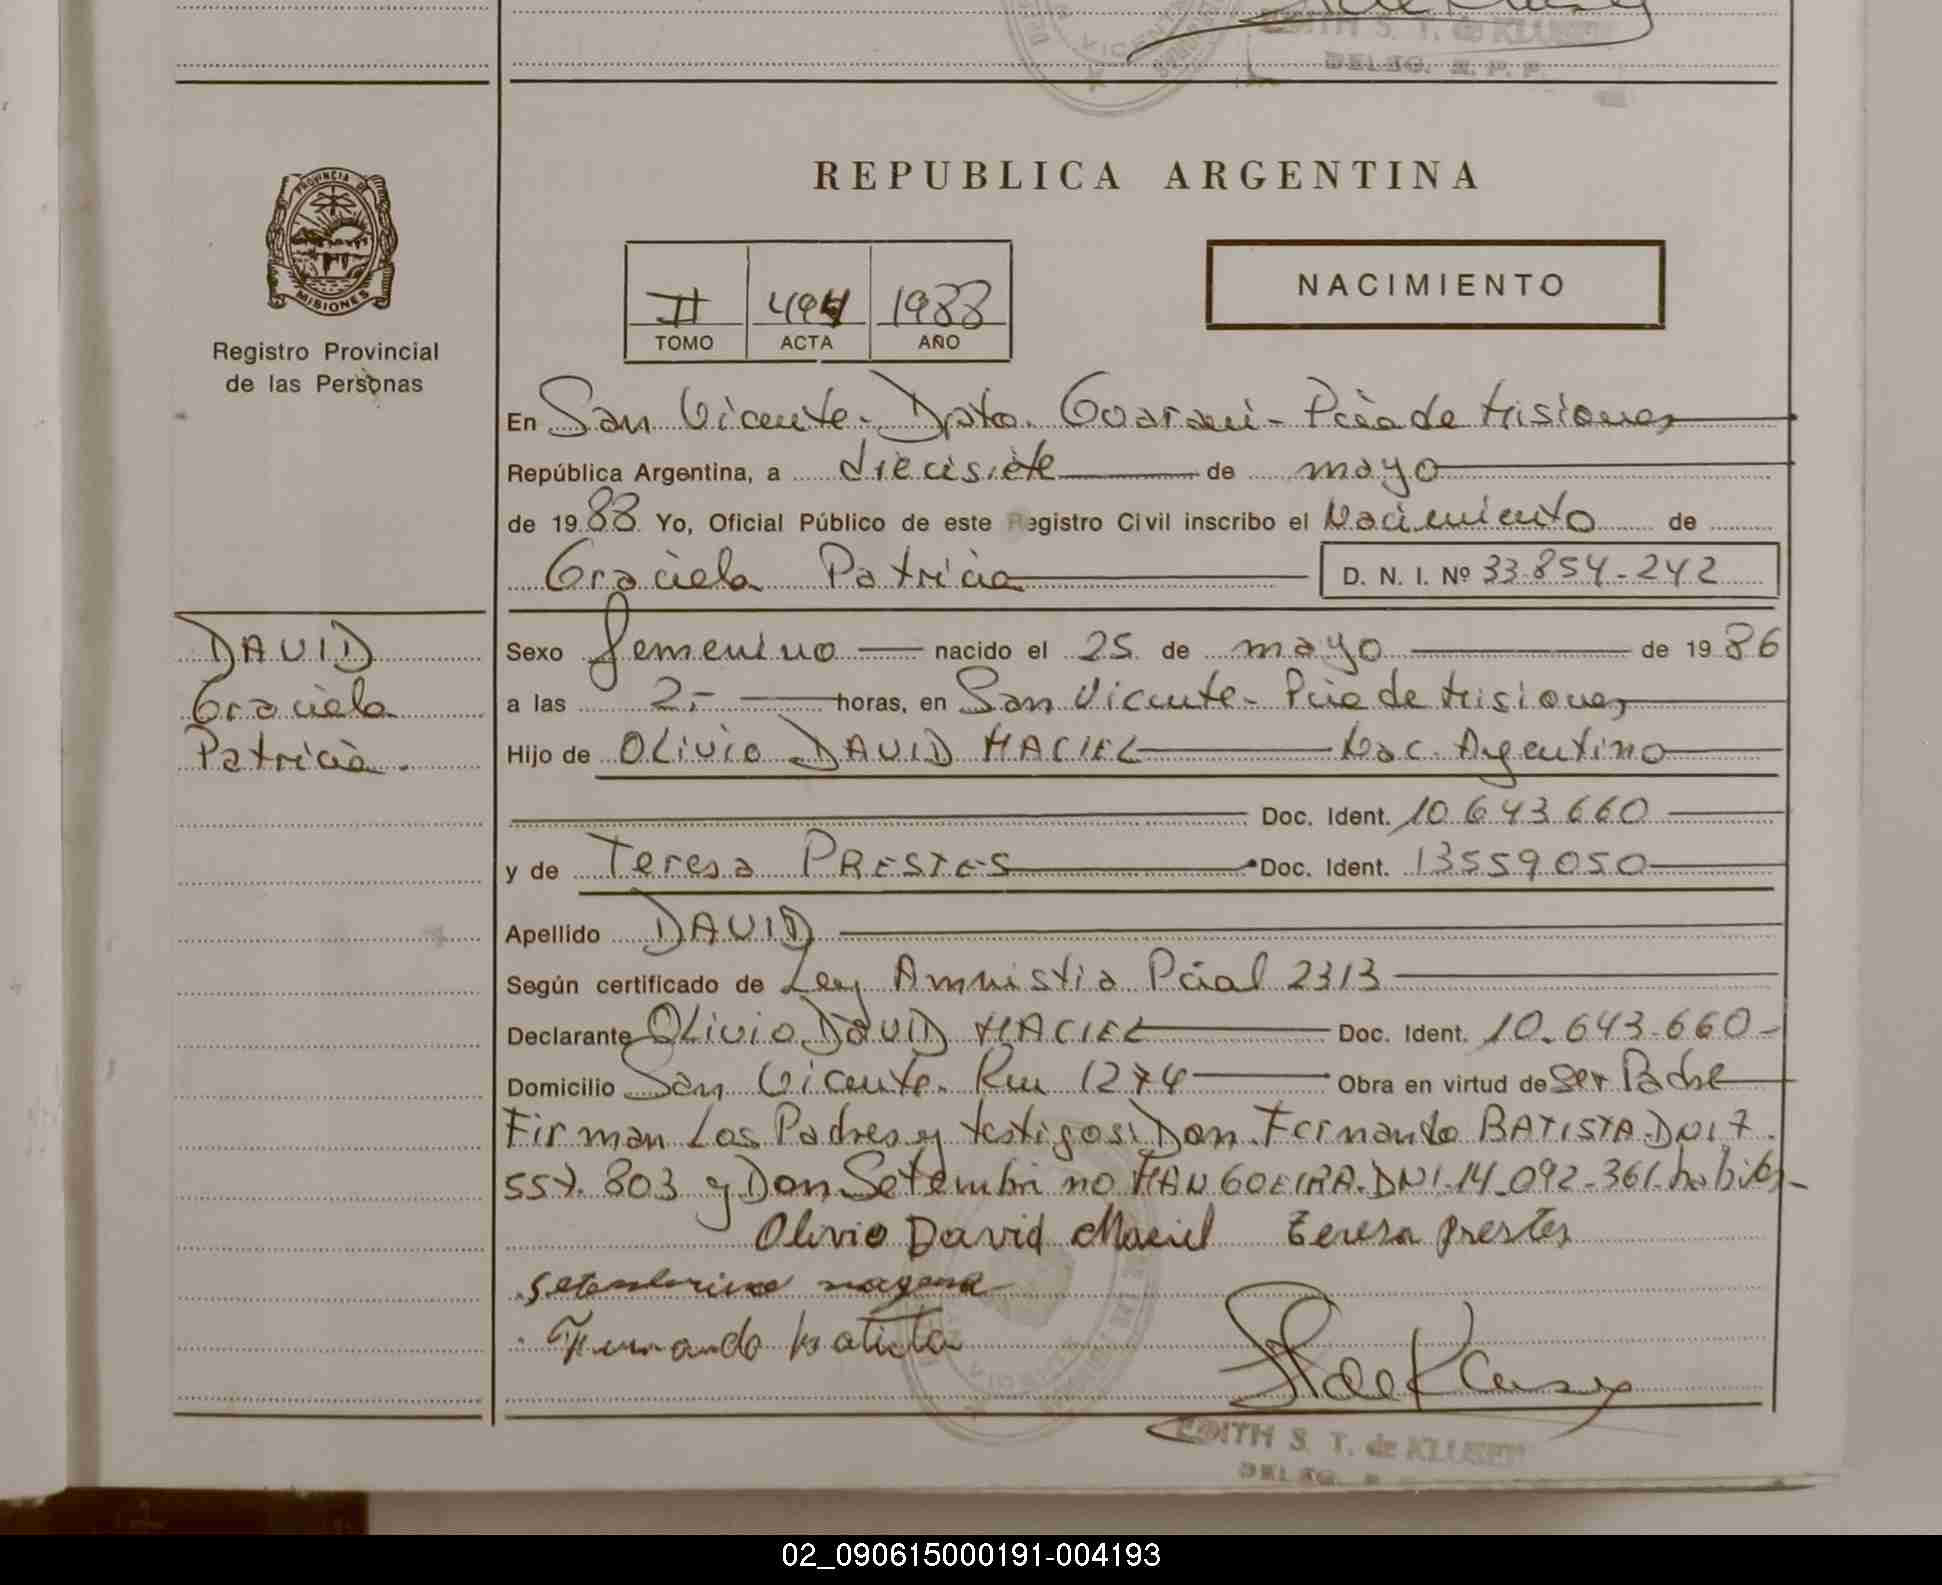 EDITH S. T. de KLUSEN
DELEG. R. P. P.
VICENTE
REPUBLICA ARGENTINA
PROVINCIA DE
MISIONES
Registro Provincial
de las Personas
II 494 1988
TOMO ACTA AÑO
NACIMIENTO
En San Vicente - Dpto. Guaraní - Pcia de Misiones
República Argentina, a diecisiete de mayo
de 1988. Yo, Oficial Público de este Registro Civil inscribo el Nacimiento de
Graciela Patricia D. N. I. Nº 33.854.242
DAVID
Graciela
Patricia.
Sexo femenino nacido el 25 de mayo de 1986
a las 2.- horas, en San Vicente - Pcia de Misiones
Hijo de OLivio DAVID MACIEL Nac. Argentino
Doc. Ident. 10.643.660
y de Teresa PRESTES Doc. Ident. 13559050
Apellido DAVID
Según certificado de Ley Amnistia Pcial 2313
Declarante OLivio DAVID MACIEL Doc. Ident. 10.643.660-
Domicilio San Vicente. Km 1274 Obra en virtud de ser Padre
Firman Los Padres y testigos: Don Fernando BATISTA-DNI 7.
557.803 y Don Setembrino MANGOEIRA-DNI-14.092.361-habiles-
Olivio David Maciel Teresa prestes
setembrino
Fernando batista
EDITH S. T. de KLUSEN
DELEG. R.
02_090615000191-004193